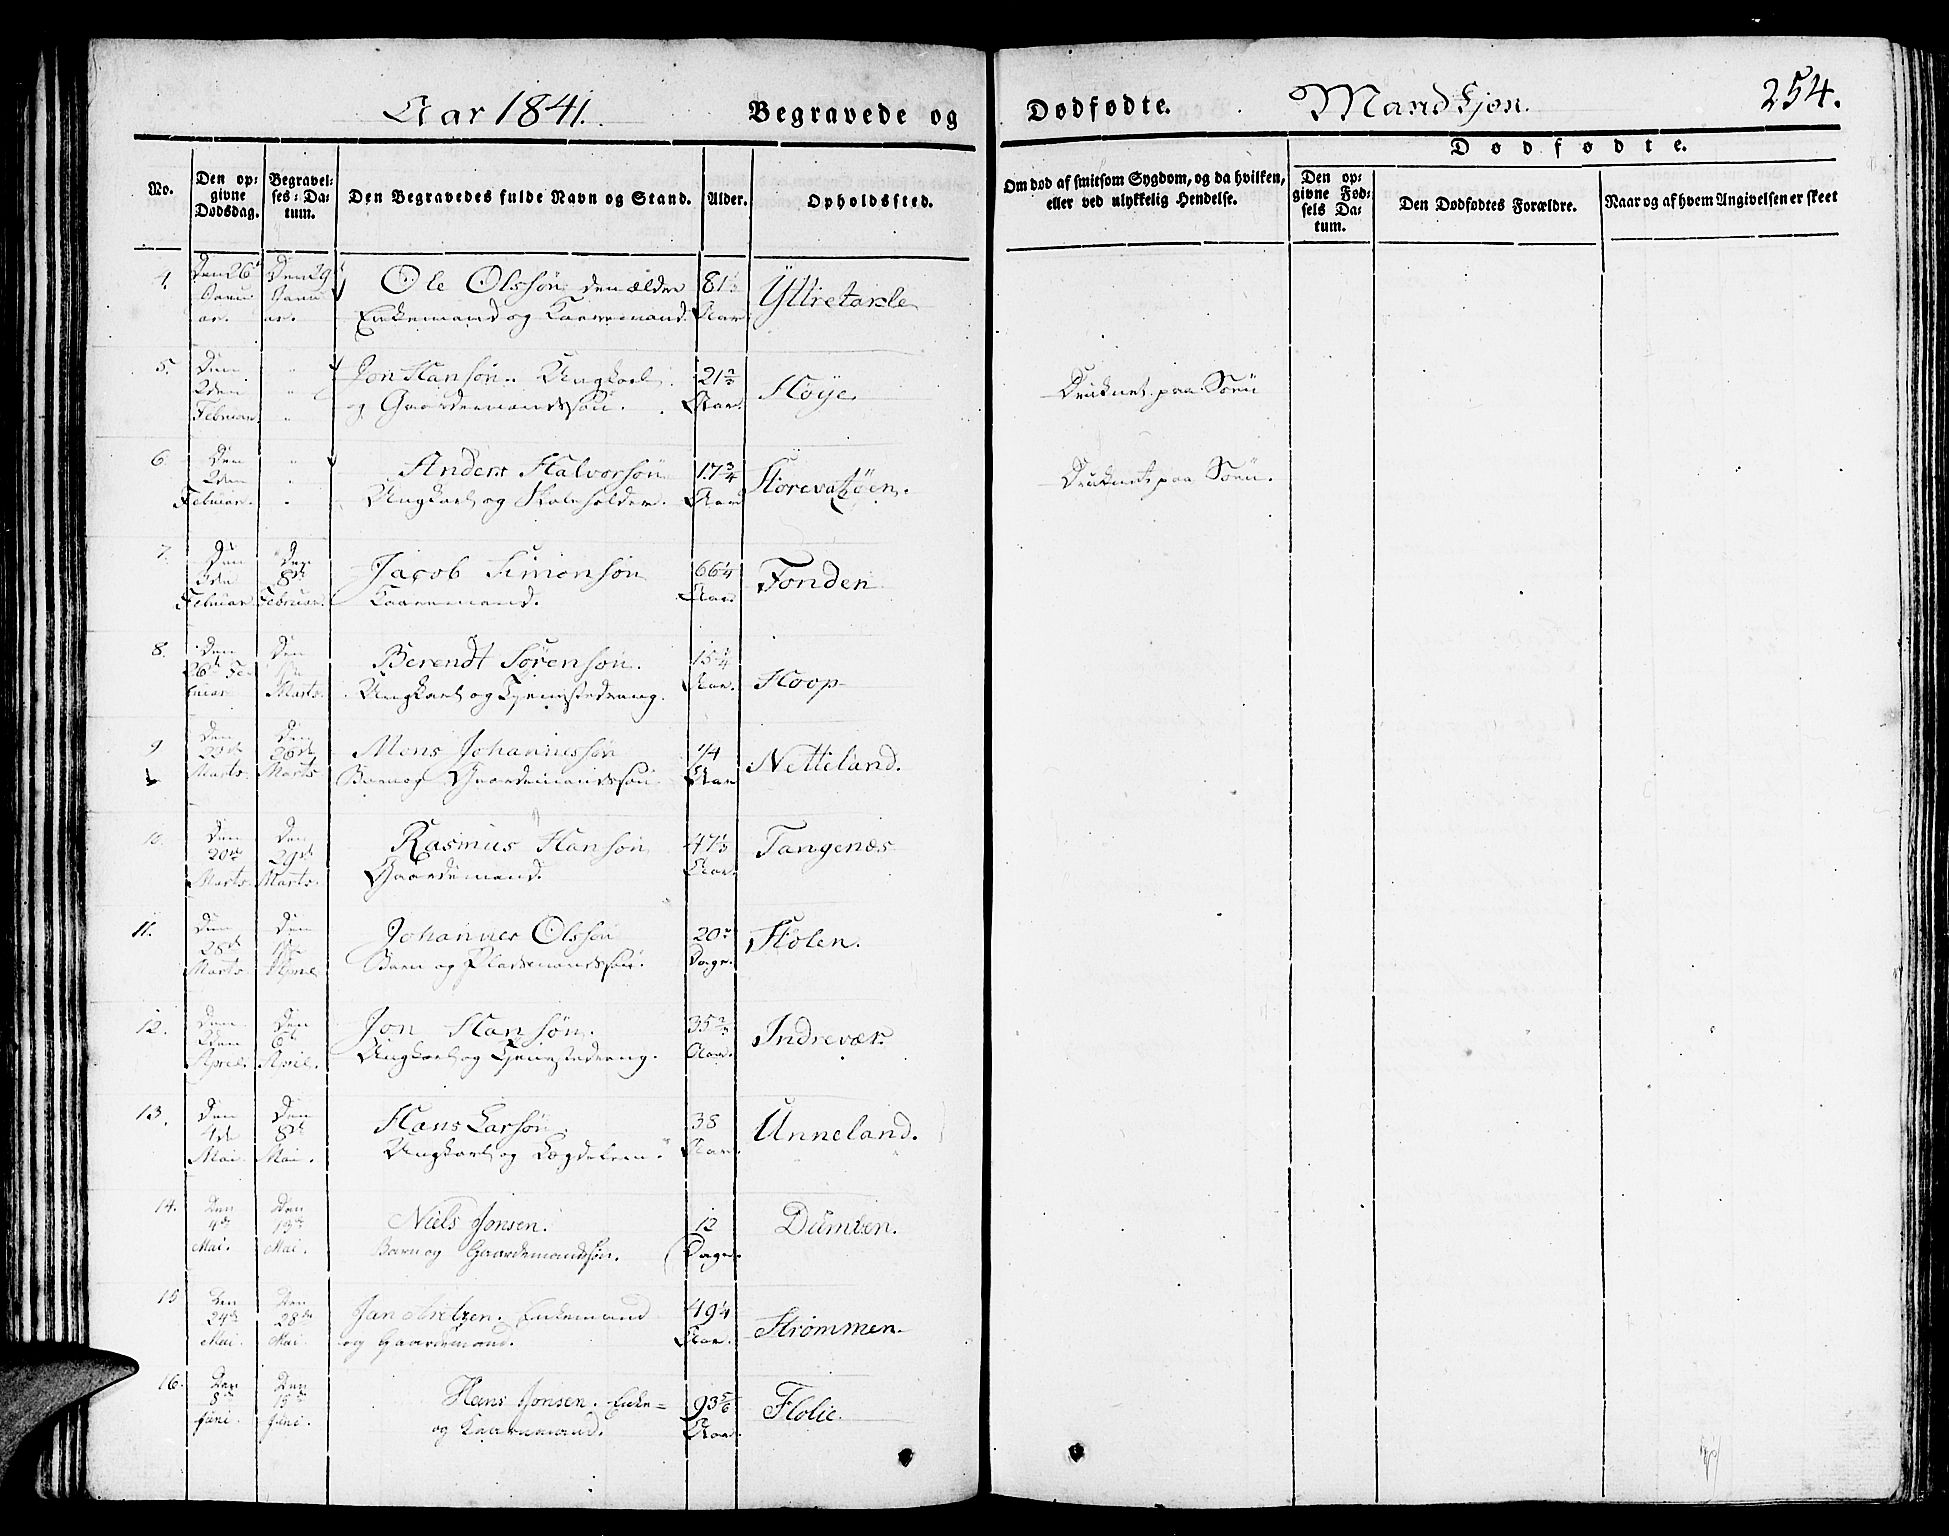 Aar 1841. Begravede og Dødfødte. Mandkjøn. 254.
No.
Den opgivne Dødsdag.
Begravelses-Datum.
Den Begravedes fulde Navn og Stand.
Alder.
Opholdssted.
Om død af smitsom Sygdom, og da hvilken, eller ved ulykkelig Hendelse.
Dødfødte.
Den opgivne Fødsels Datum.
Den Dødfødtes Forældre.
Naar og af hvem Angivelsen er skeet
4. Den 26de Den 29de Ole Olssøn den ældre 81½ Yttretarle
Januar. Januar. Enkemand og Kaarmand. Aar
5. Den Jon Hansøn. Ungkarl 21 Høye.
2den Druknet paa Søen
Februar. og Gaardemandssøn. Aar.
6. Den Anders Halvorsøn 17¾
2den Druknet paa Søen.
Februar. Ungkarl og Skoleholder. Aar
7. Den Den Jacob Simonsøn 66¼ Fonden
3den 8de
Februar. Februar. Kaarmand. Aar
8. Den Den Berendt Sørensøn. 15¼ Hoop
26de Februar Marts. Ungkarl og Tjenestedreng. Aar.
9 Den Den Mons Johannessøn ¼ Netteland.
28de
Marts Marts Barn og Gaardemandssøn. Aar
10. Den Den Rasmus Hansøn 47½ Tangenæs
20de 29de
Marts. Marts. Gaardemand. Aar.
11. Den Den Johannes Olssøn 20 Hølen.
28de
Marts. April Barn og Pladsemandssøn. Dage.
12. Den Den Jon Hansøn. 35 Indrevær.
2den 6te
April. April. Ungkarl og Tjenestedreng. Aar.
13. Den Den Hans Larsøn. 38 Unneland.
4de 8de
Mai. Mai. Ungkarl og Lægdelem. Aar.
14. Den Den Niels Jonsen. 12 Dumben.
4de 13de
Mai. Mai. Barn og Gaardemandssøn. Dage.
15 Den Den Jan Aretzen. Enkemand 49¼ Strømmen.
24de 28de
Mai. Mai. og Gaardemand. Aar.
16. Den Den Hans Jonsen. Enke= 93⅚ Flolie.
8de 15de
Juni. Juni. og Kaarmand. Aar.